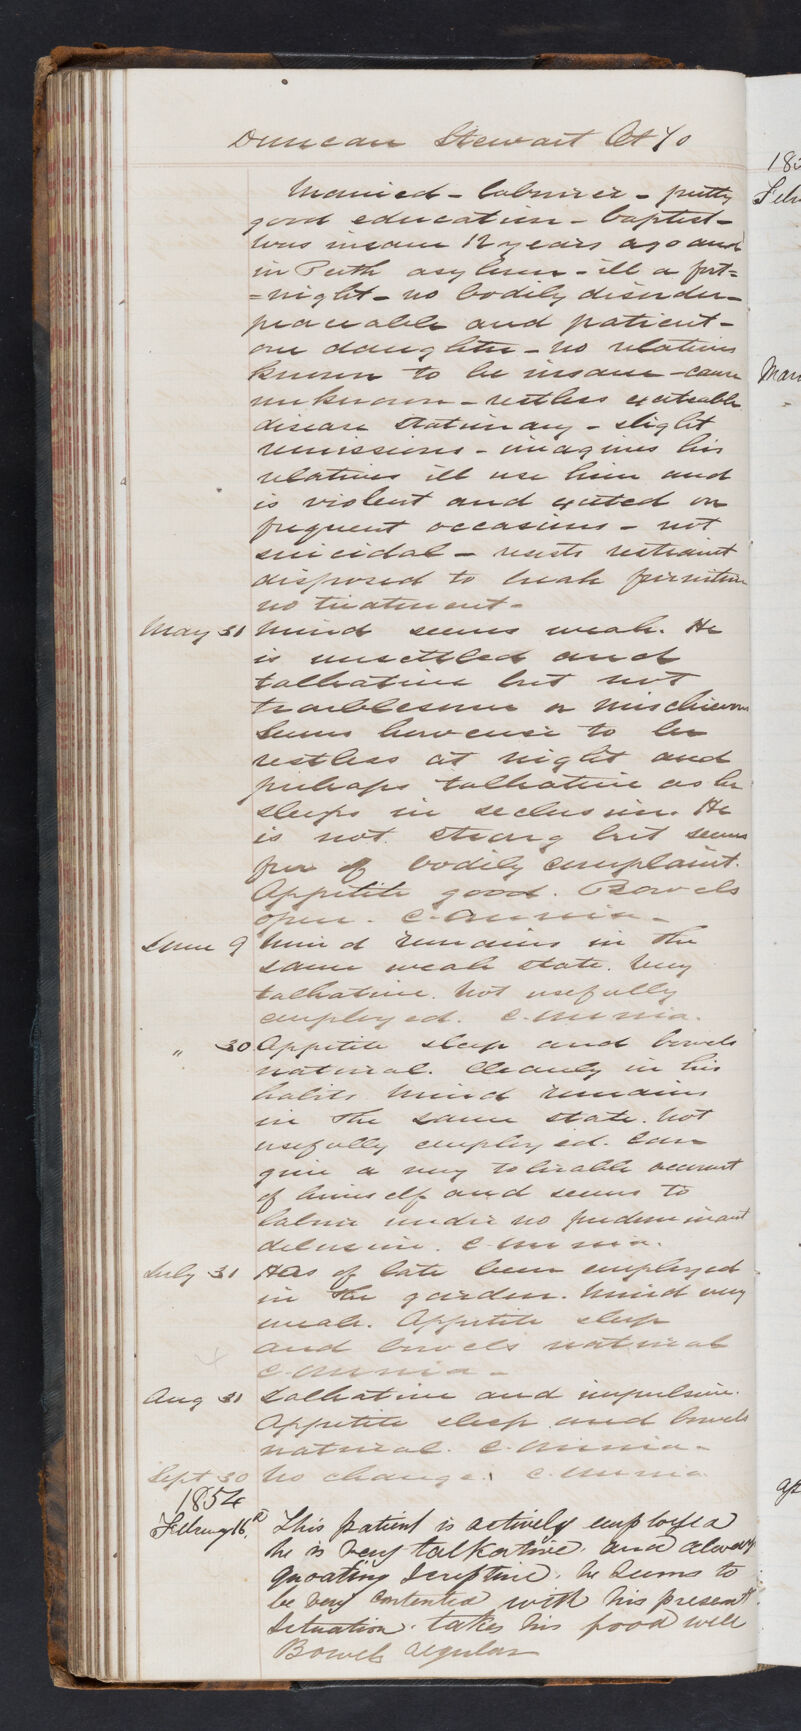 Duncan Stewart Æt 70
Married - labourer - pretty
good education - baptist -
was insane 12 years ago and
in Perth asylum - ill a fort=
=night - no bodily disorder -
peaceable and patient -
one daughter - no relatives
known to be insane - cause
unknown - restless excitable
disease stationary - slight
remissions - imagines his
relatives ill use him and
is violent and excited on
frequent occasions - not
suicidal - resists restraint
disposed to break furniture
no treatment -
May 31 Mind seems weak. He
is unsettled and
talkative but not
troublesome or mischievous
Seems however to be
restless at night and
perhaps talkative as he
sleeps in seclusion. He
is not strong but seems
free of bodily complaint.
Appetite good. Bowels
open. C. omnia -
June 9 Mind remains in the
same weak state. Very
talkative. Not usefully
employed. C. omnia.
" 30 Appetite sleep and bowels
natural. Cleanly in his
habits. Mind remains
in the same state. Not
usefully employed. Can
give a very tolerable account
of himself and seems to
labour under no predominant
delusion. C. omnia.
July 31 Has of late been employed
in the garden. Mind very
weak. Appetite sleep
and bowels natural
C. omnia -
Aug 31 Talkative and impulsive.
Appetite sleep and bowels
natural. C. omnia -
Sept 30 No change. C. omnia
1854
Februy 16th This patient is actively employed
he is very talkative and always
quoating Scripture. he seems to
be very contented with his present
Situation. takes his food well
Bowels regular
185
Febr
Mar